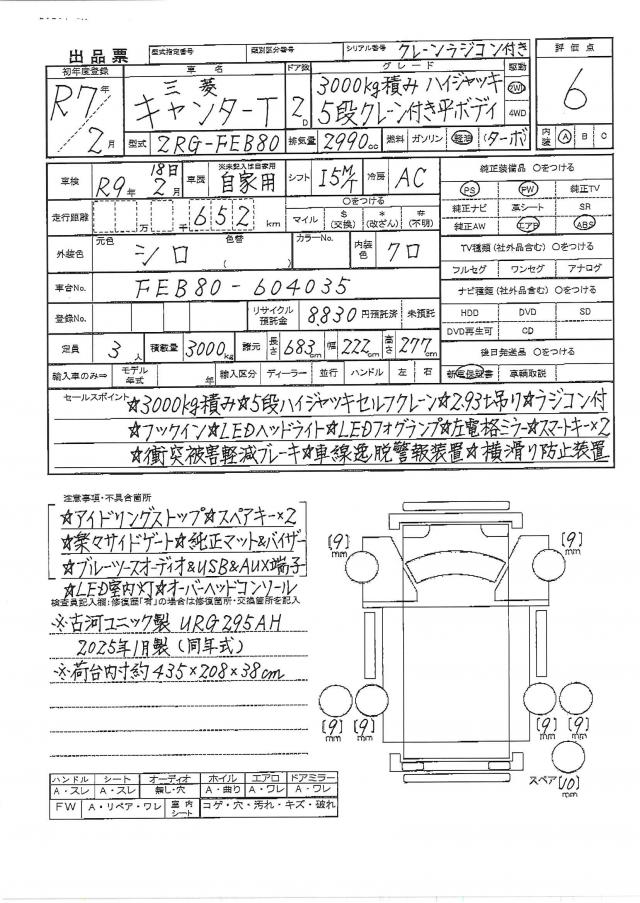 出品票 型式指定番号 類別区分番号 シリアル番号 クレーンラジコン付き 評価点
初年度登録 車名 ドア数 グレード 駆動
R7年/2月 三菱 キャンターT 2D 3000kg積み ハイジャッキ 2WD 6
5段クレーン付き平ボディ 4WD
型式 2RG-FEB80 排気量 2990cc 燃料 ガソリン 軽油 (ターボ) 内装 A B C
車検 R9年 2月 18日 車歴 ※未記入は自家用 自家用 シフト I5M/T 冷房 AC 純正装備品 ○をつける
PS PW 純正TV
走行距離 万 千 652 km ○をつける マイル $(交換) *(改ざん) #(不明) 純正ナビ 革シート SR
純正AW エアB ABS
外装色 元色 シロ 色替 ( ) カラーNo. 内装色 クロ TV種類(社外品含む) ○をつける
フルセグ ワンセグ アナログ
車台No. FEB80-604035 ナビ種類(社外品含む) ○をつける
登録No. リサイクル預託金 8,830円預託済 未預託 HDD DVD SD
DVD再生可 CD
定員 3人 積載量 3000kg 諸元 長さ 683cm 幅 222cm 高さ 277cm 後日発送品 ○をつける
輸入車のみ⇒ モデル年式 年 輸入区分 ディーラー 並行 ハンドル 左 右 新車保証書 車輌取説
セールスポイント ☆3000kg積み☆5段ハイジャッキセルフクレーン☆2.93t吊り☆ラジコン付
☆フックイン☆LEDヘッドライト☆LEDフォグランプ☆左電格ミラー☆スマートキー×2
☆衝突被害軽減ブレーキ☆車線逸脱警報装置☆横滑り防止装置
注意事項・不具合箇所
☆アイドリングストップ☆スペアキー×2
☆楽々サイドゲート☆純正マット&バイザー
☆ブルーツースオーディオ&USB&AUX端子
☆LED室内灯☆オーバーヘッドコンソール
検査員記入欄:修復歴「有」の場合は修復箇所・交換箇所を記入
※古河ユニック製 URG295AH
2025年1月製(同年式)
※荷台内寸約435×208×38cm
[9]mm [9]mm
[9]mm [9]mm [9]mm [9]mm
スペア [10]mm
ハンドル シート オーディオ ホイル エアロ ドアミラー
A・スレ A・スレ 無し・穴 A・曲り A・ワレ A・ワレ
FW A・リペア・ワレ 室内シート コゲ・穴・汚れ・キズ・破れ